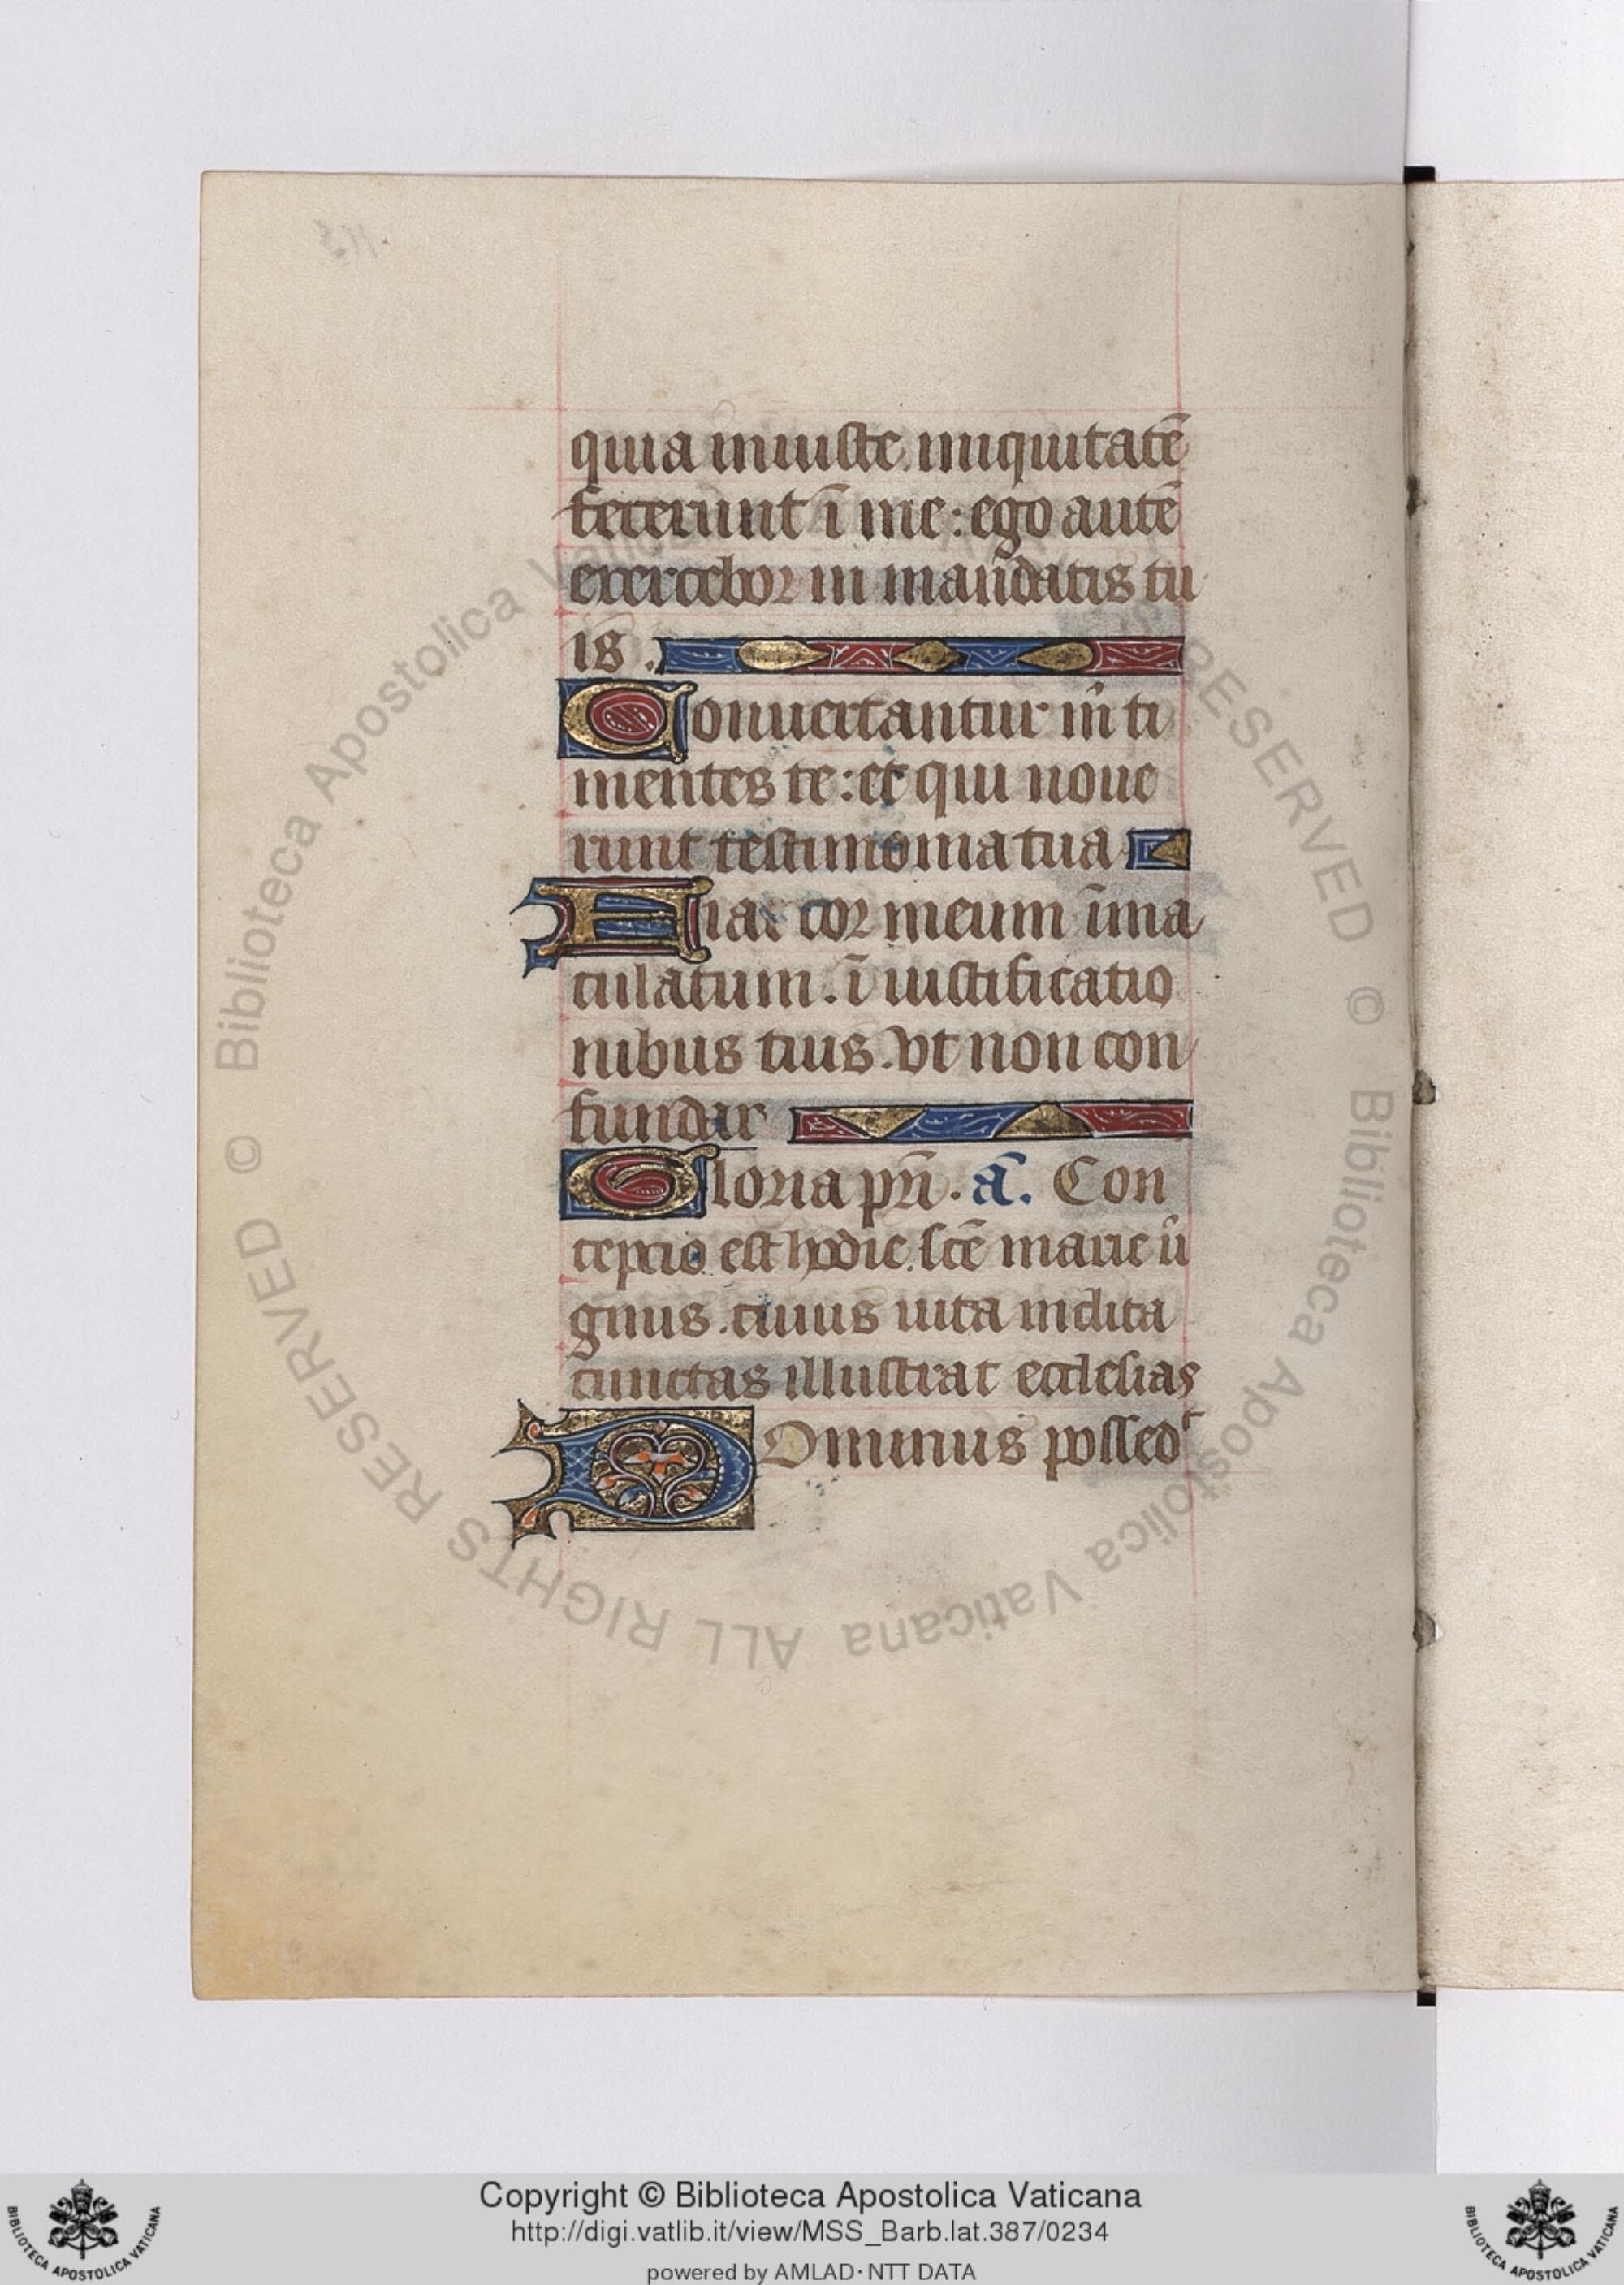 quia iniuste iniquitatē
fecerunt ī me: ego autē
exercebor in mandatis tu
is.
Conuertantur m̄ ti
mentes te: et qui noue
runt testimonia tua
Fiat cor meum īma
culatum. ī iustificatio
nibus tuis. vt non con
fundar
Gloria pr̄i. a͞. Con
cepcio est hodie. sc̄e marie ui
ginis. cuius uita inclita
cunctas illustrat ecclesias
DOminus possed
© Biblioteca Apostolica Vaticana ALL RIGHTS RESERVED © Biblioteca Apostolica Vaticana ALL RIGHTS RESERVED
Copyright © Biblioteca Apostolica Vaticana
http://digi.vatlib.it/view/MSS_Barb.lat.387/0234
powered by AMLAD・NTT DATA
BIBLIOTECA APOSTOLICA VATICANA
BIBLIOTECA APOSTOLICA VATICANA